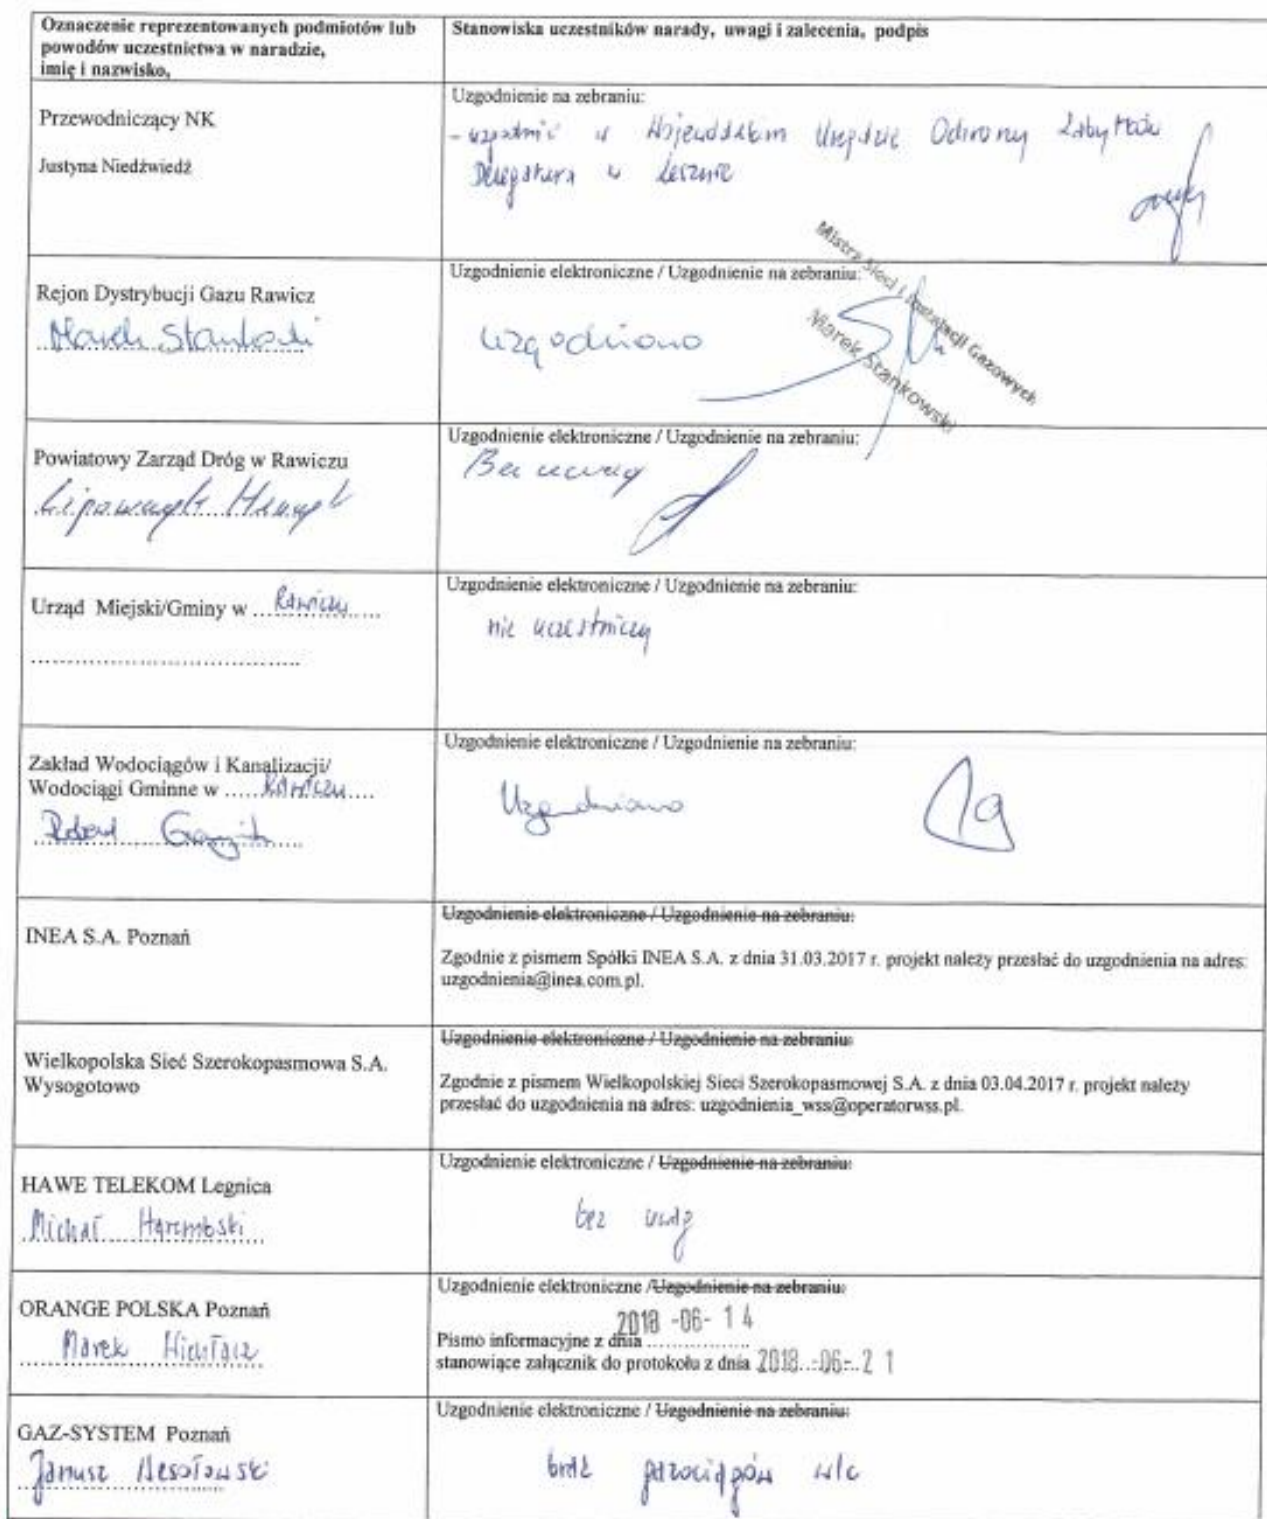 Oznaczenie reprezentowanych podmiotów lub
powodów uczestnictwa w naradzie,
imię i nazwisko,
Stanowiska uczestników narady, uwagi i zalecenia, podpis
Przewodniczący NK
Justyna Niedźwiedź
Uzgodnienie na zebraniu:
- uzgodnić w Wojewódzkim Urzędzie Ochrony Zabytków
Delegatura w Lesznie
Rejon Dystrybucji Gazu Rawicz
Marek Stankowski
Uzgodnienie elektroniczne / Uzgodnienie na zebraniu:
uzgodniono
Mistrz Sieci i Instalacji Gazowych
Marek Stankowski
Powiatowy Zarząd Dróg w Rawiczu
Lipowczyk Henryk
Uzgodnienie elektroniczne / Uzgodnienie na zebraniu:
Bez uwag
Urząd Miejski/Gminy w ....Rawiczu......
Uzgodnienie elektroniczne / Uzgodnienie na zebraniu:
nie uczestniczy
Zakład Wodociągów i Kanalizacji/
Wodociągi Gminne w ......Rawiczu....
Robert
Uzgodnienie elektroniczne / Uzgodnienie na zebraniu:
Uzgodniono
INEA S.A. Poznań
Uzgodnienie elektroniczne / Uzgodnienie na zebraniu:
Zgodnie z pismem Spółki INEA S.A. z dnia 31.03.2017 r. projekt należy przesłać do uzgodnienia na adres:
uzgodnienia@inea.com.pl.
Wielkopolska Sieć Szerokopasmowa S.A.
Wysogotowo
Uzgodnienie elektroniczne / Uzgodnienie na zebraniu:
Zgodnie z pismem Wielkopolskiej Sieci Szerokopasmowej S.A. z dnia 03.04.2017 r. projekt należy
przesłać do uzgodnienia na adres: uzgodnienia_wss@operatorwss.pl.
HAWE TELEKOM Legnica
Michał Harembski
Uzgodnienie elektroniczne / Uzgodnienie na zebraniu:
bez uwag
ORANGE POLSKA Poznań
Marek
Uzgodnienie elektroniczne /Uzgodnienie na zebraniu:
Pismo informacyjne z dnia 2018 -06- 14
stanowiące załącznik do protokołu z dnia 2018 -06- 21
GAZ-SYSTEM Poznań
Janusz Wesołowski
Uzgodnienie elektroniczne / Uzgodnienie na zebraniu:
brak gazociągów w/c